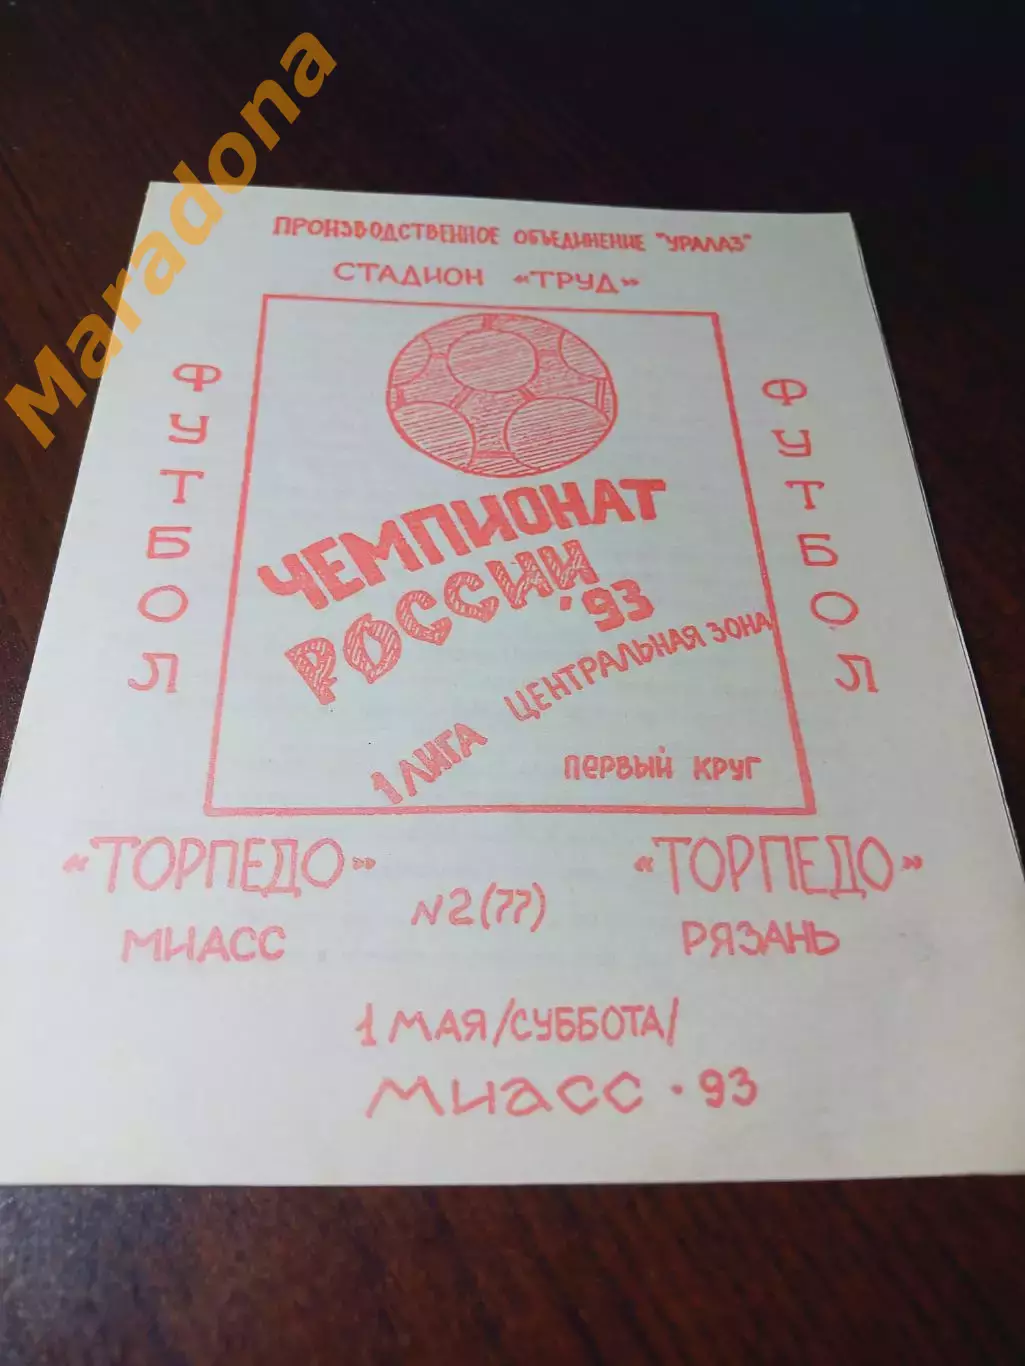 Maradona
ПРОИЗВОДСТВЕННОЕ ОБЪЕДИНЕНИЕ "УРАЛАЗ"
СТАДИОН «ТРУД»
ФУТБОЛ
ЧЕМПИОНАТ
РОССИИ
'93
1 ЛИГА ЦЕНТРАЛЬНАЯ ЗОНА
ПЕРВЫЙ КРУГ
ФУТБОЛ
«ТОРПЕДО»
МИАСС
N2(77)
«ТОРПЕДО»
РЯЗАНЬ
1 МАЯ /СУББОТА/
МИАСС · 93